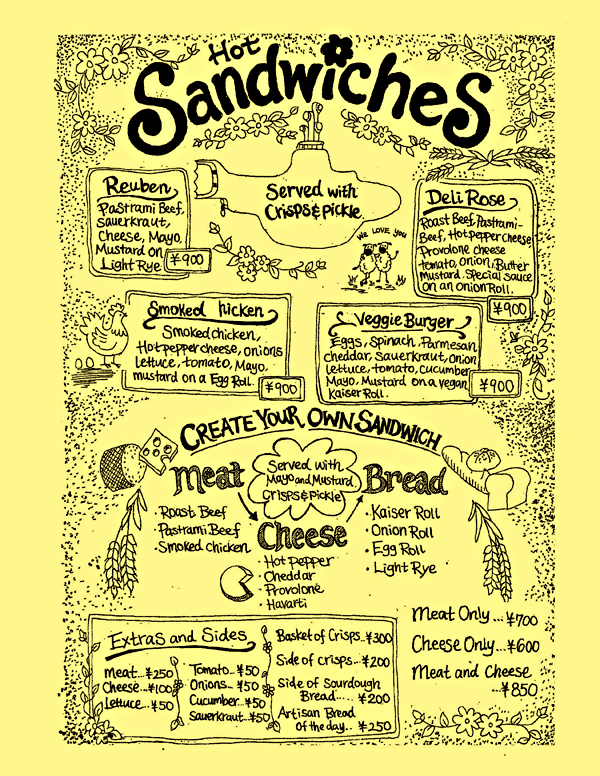 Hot
Sandwiches
Served with
Crisps & pickle
Reuben
Pastrami Beef,
sauerkraut,
Cheese, Mayo,
Mustard on
Light Rye
¥900
WE LOVE YOU
Deli Rose
Roast Beef, Pastrami-
Beef, Hot pepper cheese
Provolone cheese
tomato, onion, Butter
Mustard. Special sauce
on an onion Roll.
¥900
Smoked hicken
Smoked chicken,
Hot pepper cheese, onions
lettuce, tomato, Mayo,
mustard on a Egg Roll.
¥900
Veggie Burger
Eggs, Spinach, Parmesan,
cheddar, sauerkraut, onion
lettuce, tomato, cucumber
Mayo, Mustard on a vegan
Kaiser Roll.
¥900
CREATE YOUR OWN SANDWICH
Meat
Served with
Mayo and Mustard,
Crisps & Pickle
Bread
• Roast Beef
• Pastrami Beef
• Smoked chicken
Cheese
• Hot Pepper
• Cheddar
• Provolone
• Havarti
• Kaiser Roll
• Onion Roll
• Egg Roll
• Light Rye
Extras and Sides
Meat...¥250
Cheese...¥100
Lettuce...¥50
Tomato...¥50
Onions...¥50
Cucumber...¥50
Sauerkraut...¥50
Basket of Crisps...¥300
Side of crisps...¥200
Side of Sourdough
Bread..... ¥200
Artisan Bread
of the day... ¥250
Meat Only...¥700
Cheese Only...¥600
Meat and Cheese
...¥850